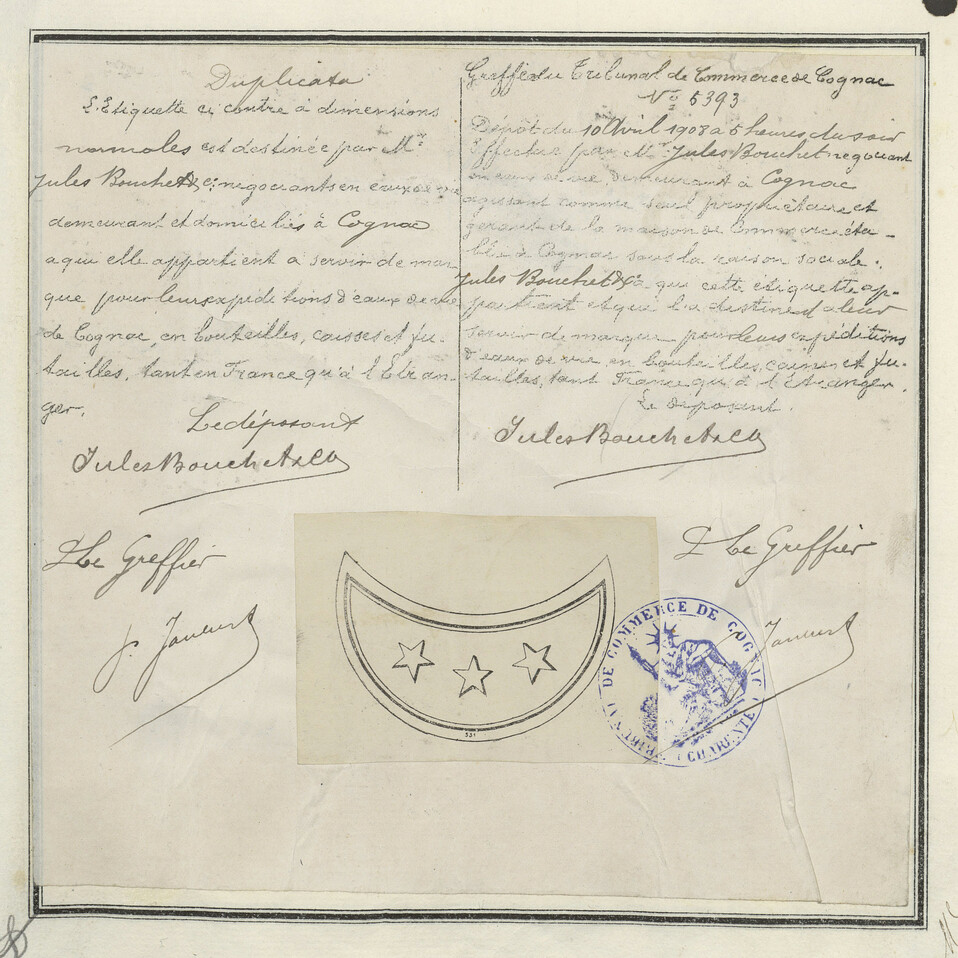 Duplicata
L'Etiquette ci contre à dimensions
normales est destinée par Mr
Jules Bouchet & Cie negociants en eaux de vie
demeurant et domiciliés à Cognac
a qui elle appartient a servir de mar
que pour leurs expéditions d'eaux de vie
de Cognac, en bouteilles, caisses et fu-
tailles, tant en France qu'à l'Etran-
ger.
Le déposant
Jules Bouchet & Co
P Le Greffier
Greffe du Tribunal de Commerce de Cognac
No 5393
Dépôt du 10 Avril 1908 a 5 heures du soir
Effectué par Mr. Jules Bouchet negociant
en eaux de vie, demeurant à Cognac
agissant comme seul propriétaire et
gérant de la maison de Commerce éta-
blie à Cognac sous la raison sociale:
Jules Bouchet & Co à qui cette étiquette ap-
partient et qui l'a destine a leur
servir de marque pour leurs expéditions
d'eaux de vie, en bouteilles, caisses et fu-
tailles, tant France qu'à l'étranger.
Le déposant.
Jules Bouchet & Co
P Le Greffier
TRIBUNAL DE COMMERCE DE COGNAC
(CHARENTE)